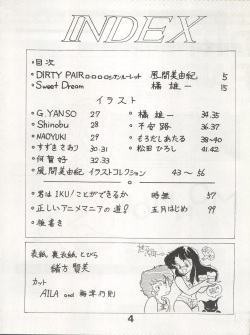 INDEX
・目次
・DIRTY PAIR ロロロロシアンルーレット 風間美由紀 5
・Sweet Dream 橘 雄一 15
イラスト
・G.YANSO 27 ・橘 雄一 34.35
・Shinobu 28 ・不安路 36.37
・NAOYUKI 29 ・もろだしあたる 38~40
・すずき さあり 30.31 ・松田 ひろし 41.42
・何賀好 32.33
・風間美由紀 イラストコレクション 43 ~ 56
・君は IKU! ことができるか 時無 57
・正しいアニメマニアの道 五月はじめ 99
・後書き
表紙, 裏表紙, とびら
緒方賢美
カット
AILA and
4